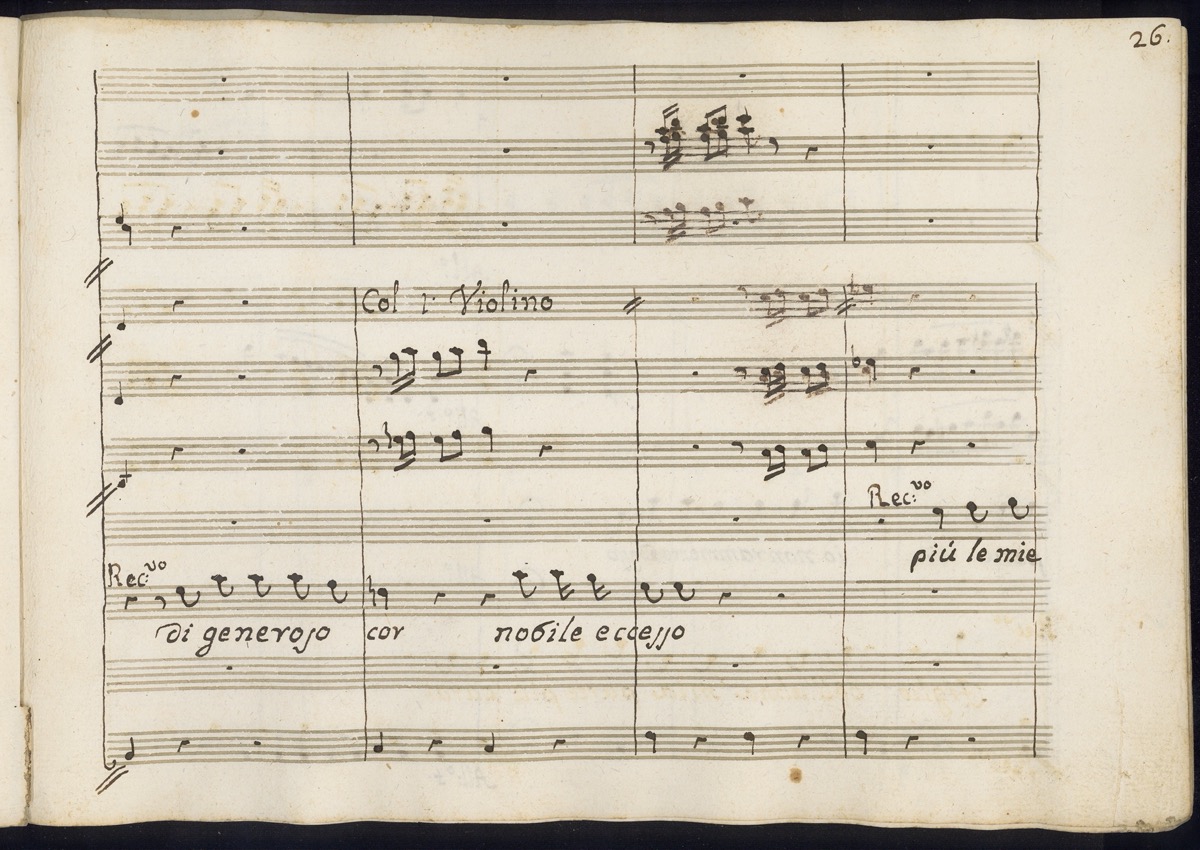 26.
Col 1º Violino
Rec:vo
più le mie
Rec:vo
di generoso cor nobile eccesso